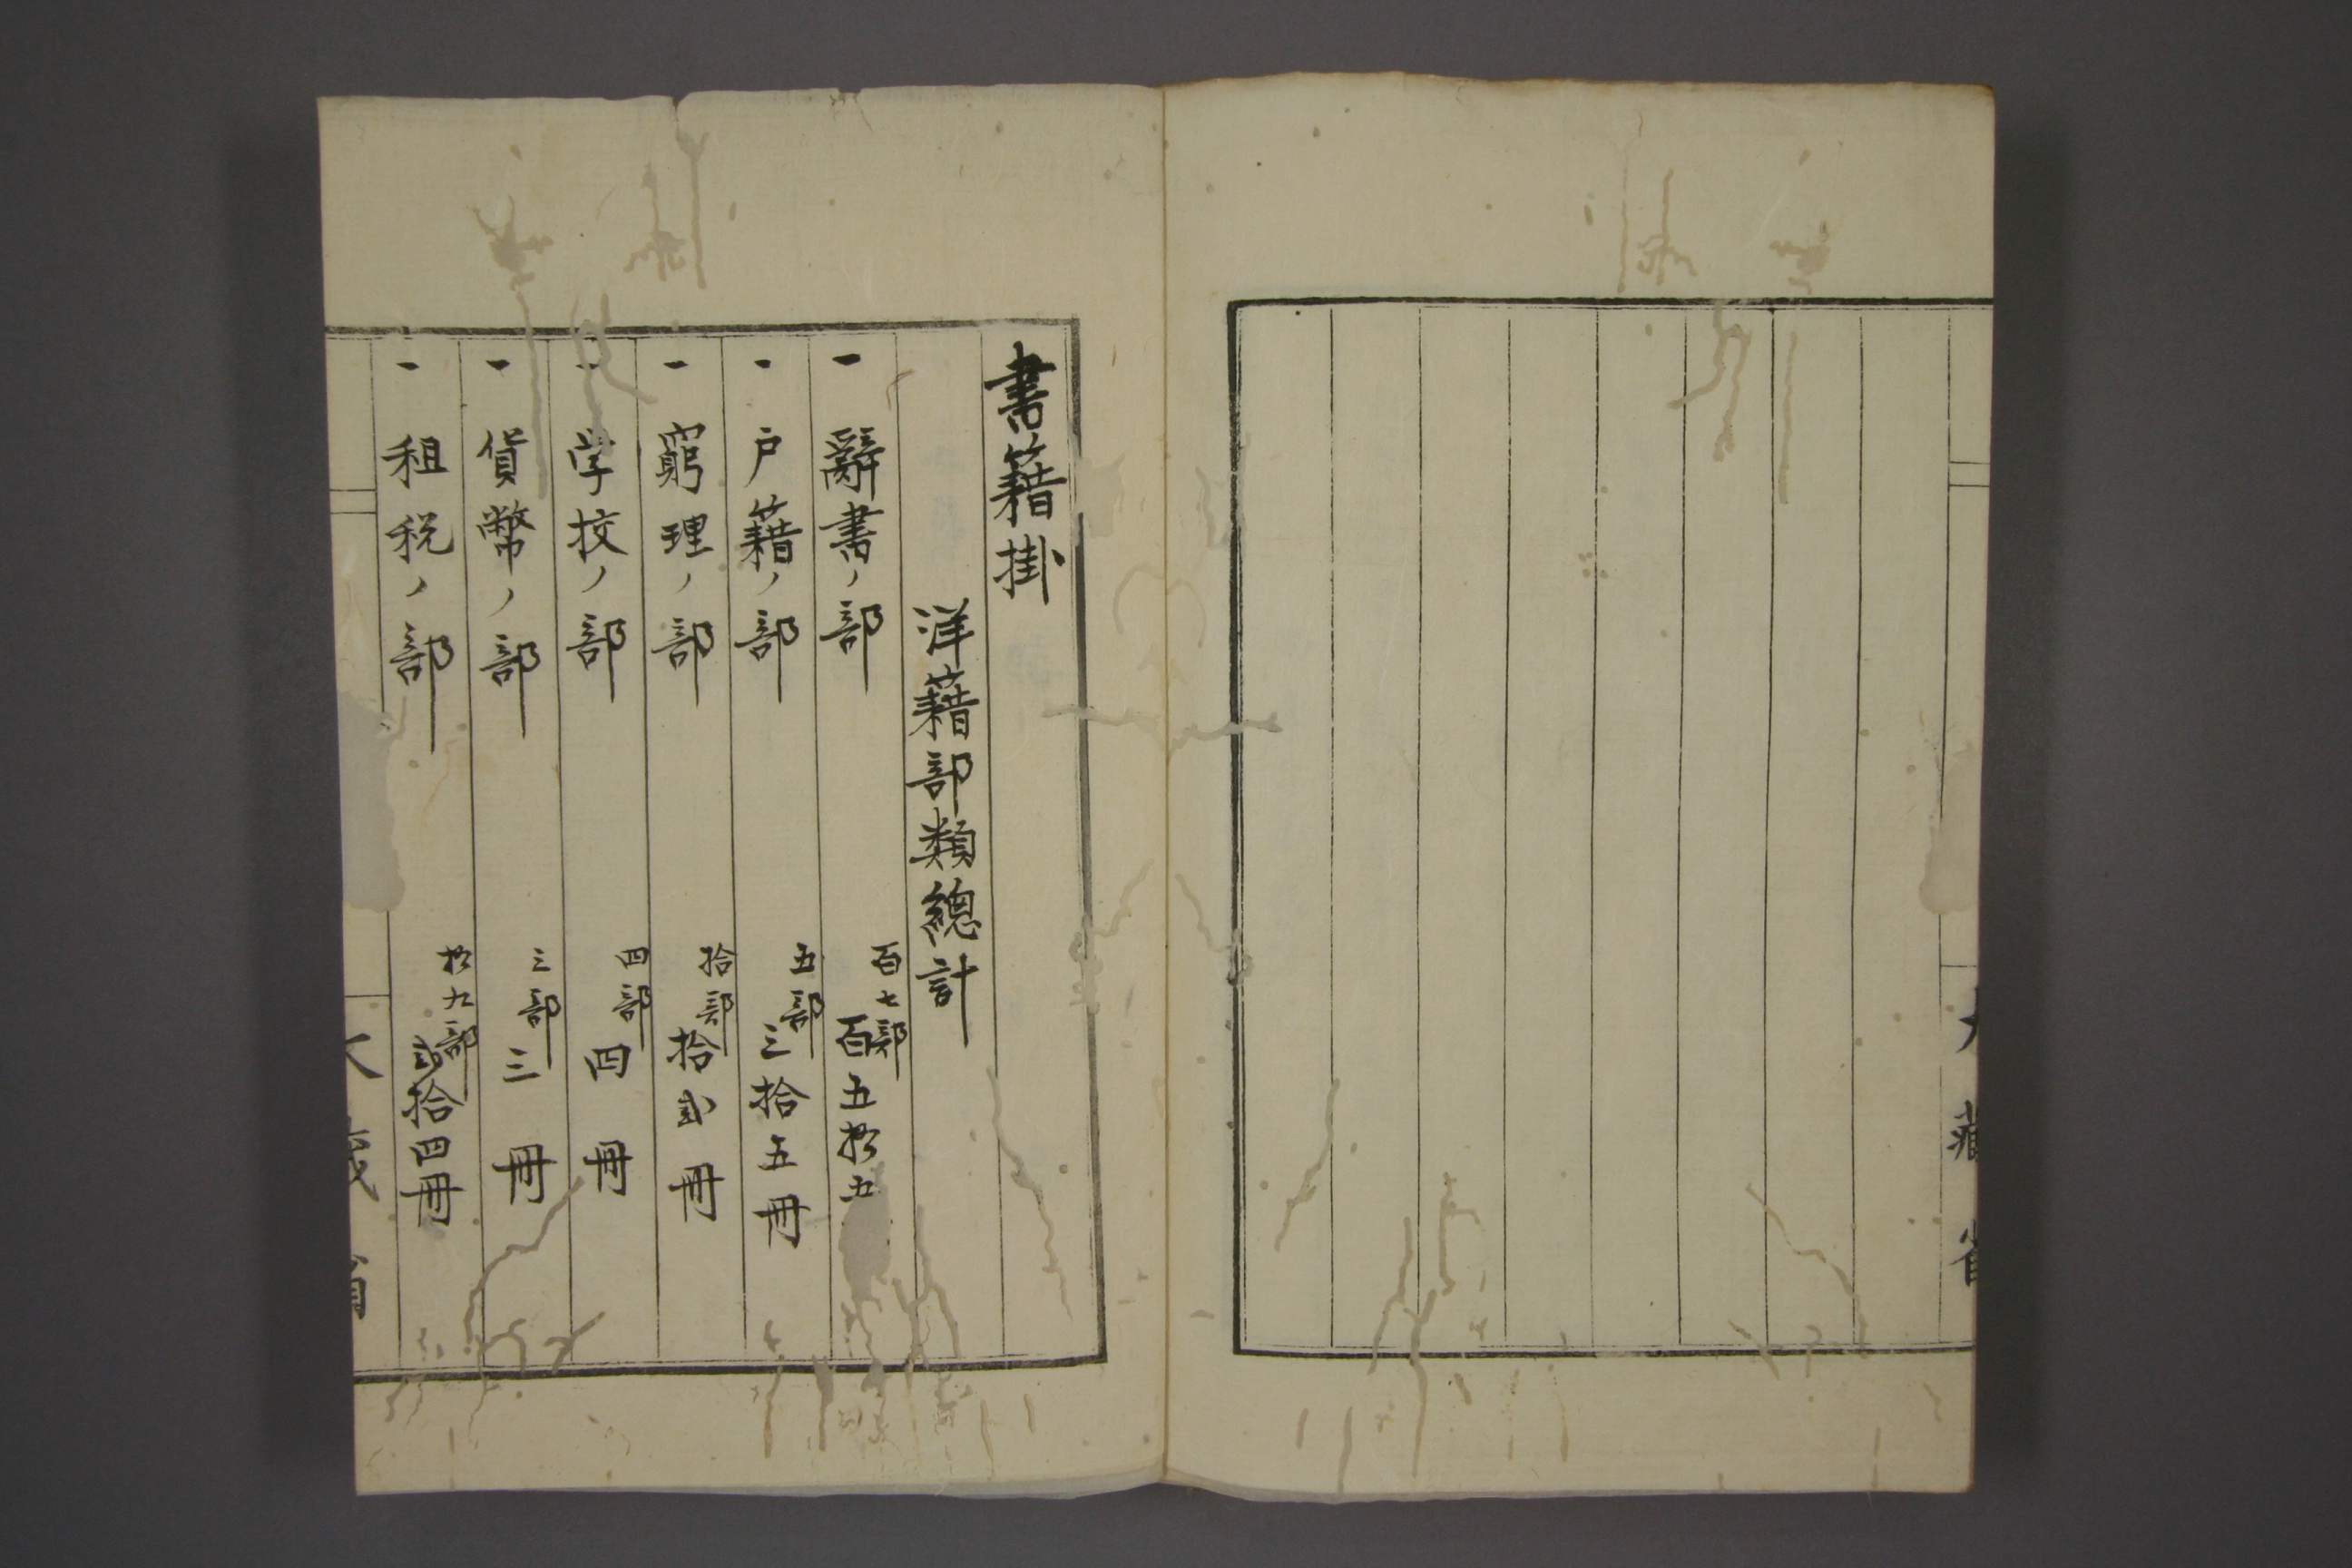 大藏省
書籍掛
洋籍部類總計
一 辭書ノ部 百七部 百五拾五
一 戸籍ノ部 五部 三拾五冊
一 窮理ノ部 拾部 拾弐冊
一 学校ノ部 四部 四冊
一 貨幣ノ部 三部 三冊
一 租税ノ部 拾九部 弐拾四冊
大藏省